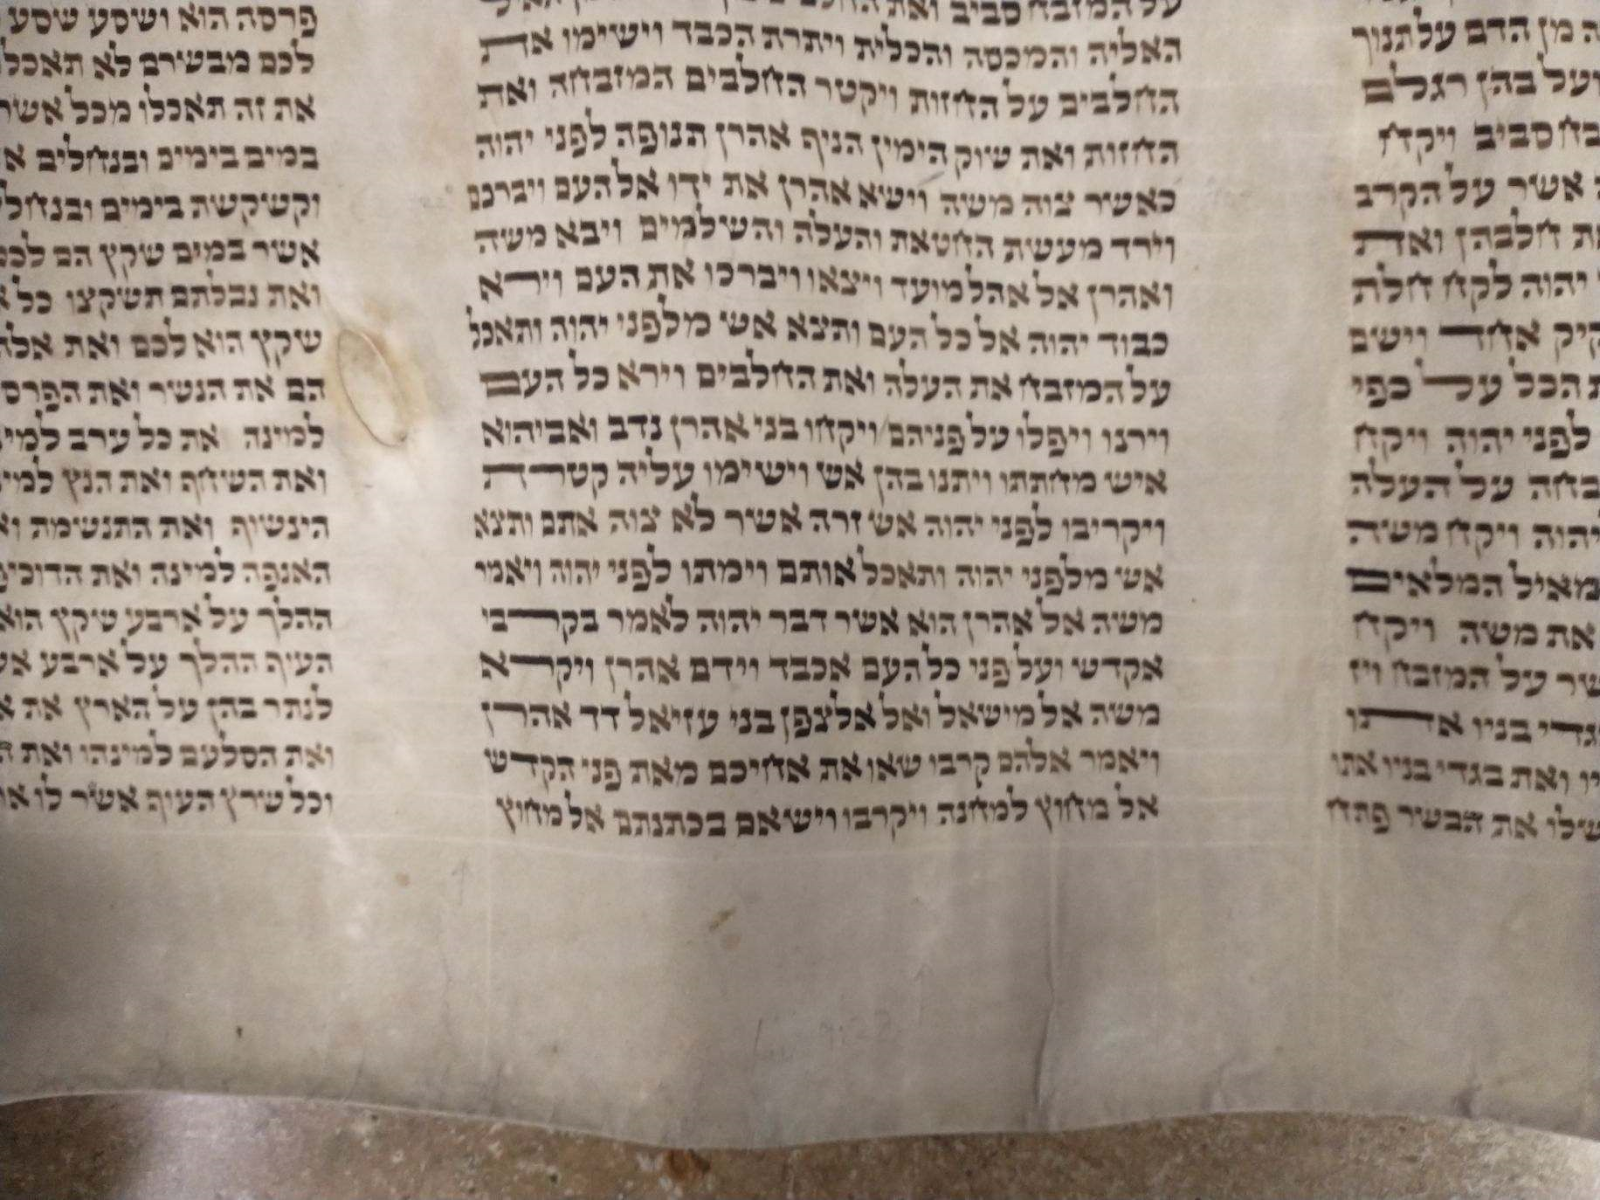 מן הדם על תנוך
ועל בהן רגלם
סביב ויקח
אשר על הקרב
חלבהן ואת
יהוה לקח חלת
אחד וישם
הכל על כפי
לפני יהוה ויקח
על העלה
יהוה ויקח משה
מאיל המלאים
את משה ויקח
על המזבח ויז
בניו אתו
ואת בגדי בניו אתו
את הבשר פתח
על המזבח סביב ואת
האליה והמכסה והכלית ויתרת הכבד וישימו את
החלבים על החזות ויקטר החלבים המזבחה ואת
החזות ואת שוק הימין הניף אהרן תנופה לפני יהוה
כאשר צוה משה וישא אהרן את ידו אל העם ויברכם
וירד מעשת החטאת והעלה והשלמים ויבא משה
ואהרן אל אהל מועד ויצאו ויברכו את העם וירא
כבוד יהוה אל כל העם ותצא אש מלפני יהוה ותאכל
על המזבח את העלה ואת החלבים וירא כל העם
וירנו ויפלו על פניהם ויקחו בני אהרן נדב ואביהוא
איש מחתתו ויתנו בהן אש וישימו עליה קטרת
ויקריבו לפני יהוה אש זרה אשר לא צוה אתם ותצא
אש מלפני יהוה ותאכל אותם וימתו לפני יהוה ויאמר
משה אל אהרן הוא אשר דבר יהוה לאמר בקרבי
אקדש ועל פני כל העם אכבד וידם אהרן ויקרא
משה אל מישאל ואל אלצפן בני עזיאל דד אהרן
ויאמר אלהם קרבו שאו את אחיכם מאת פני הקדש
אל מחוץ למחנה ויקרבו וישאם בכתנתם אל מחוץ
פרסה הוא ושסע שסע
לכם מבשרם לא תאכלו
את זה תאכלו מכל אשר
במים בימים ובנחלים
וקשקשת בימים
אשר במים שקץ הם לכם
ואת נבלתם תשקצו כל
שקץ הוא לכם ואת אלה
הם את הנשר ואת הפרס
למינה את כל ערב למינו
ואת השחף ואת הנץ למינהו
הינשוף ואת התנשמת
האנפה למינה ואת
ההלך על ארבע שקץ הוא
העוף ההלך על ארבע
לנתר בהן על הארץ את
ואת הסלעם למינהו ואת
וכל שרץ העוף אשר לו